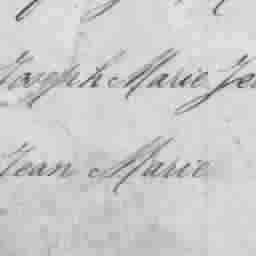 Joseph Marie Je
Jean Marie